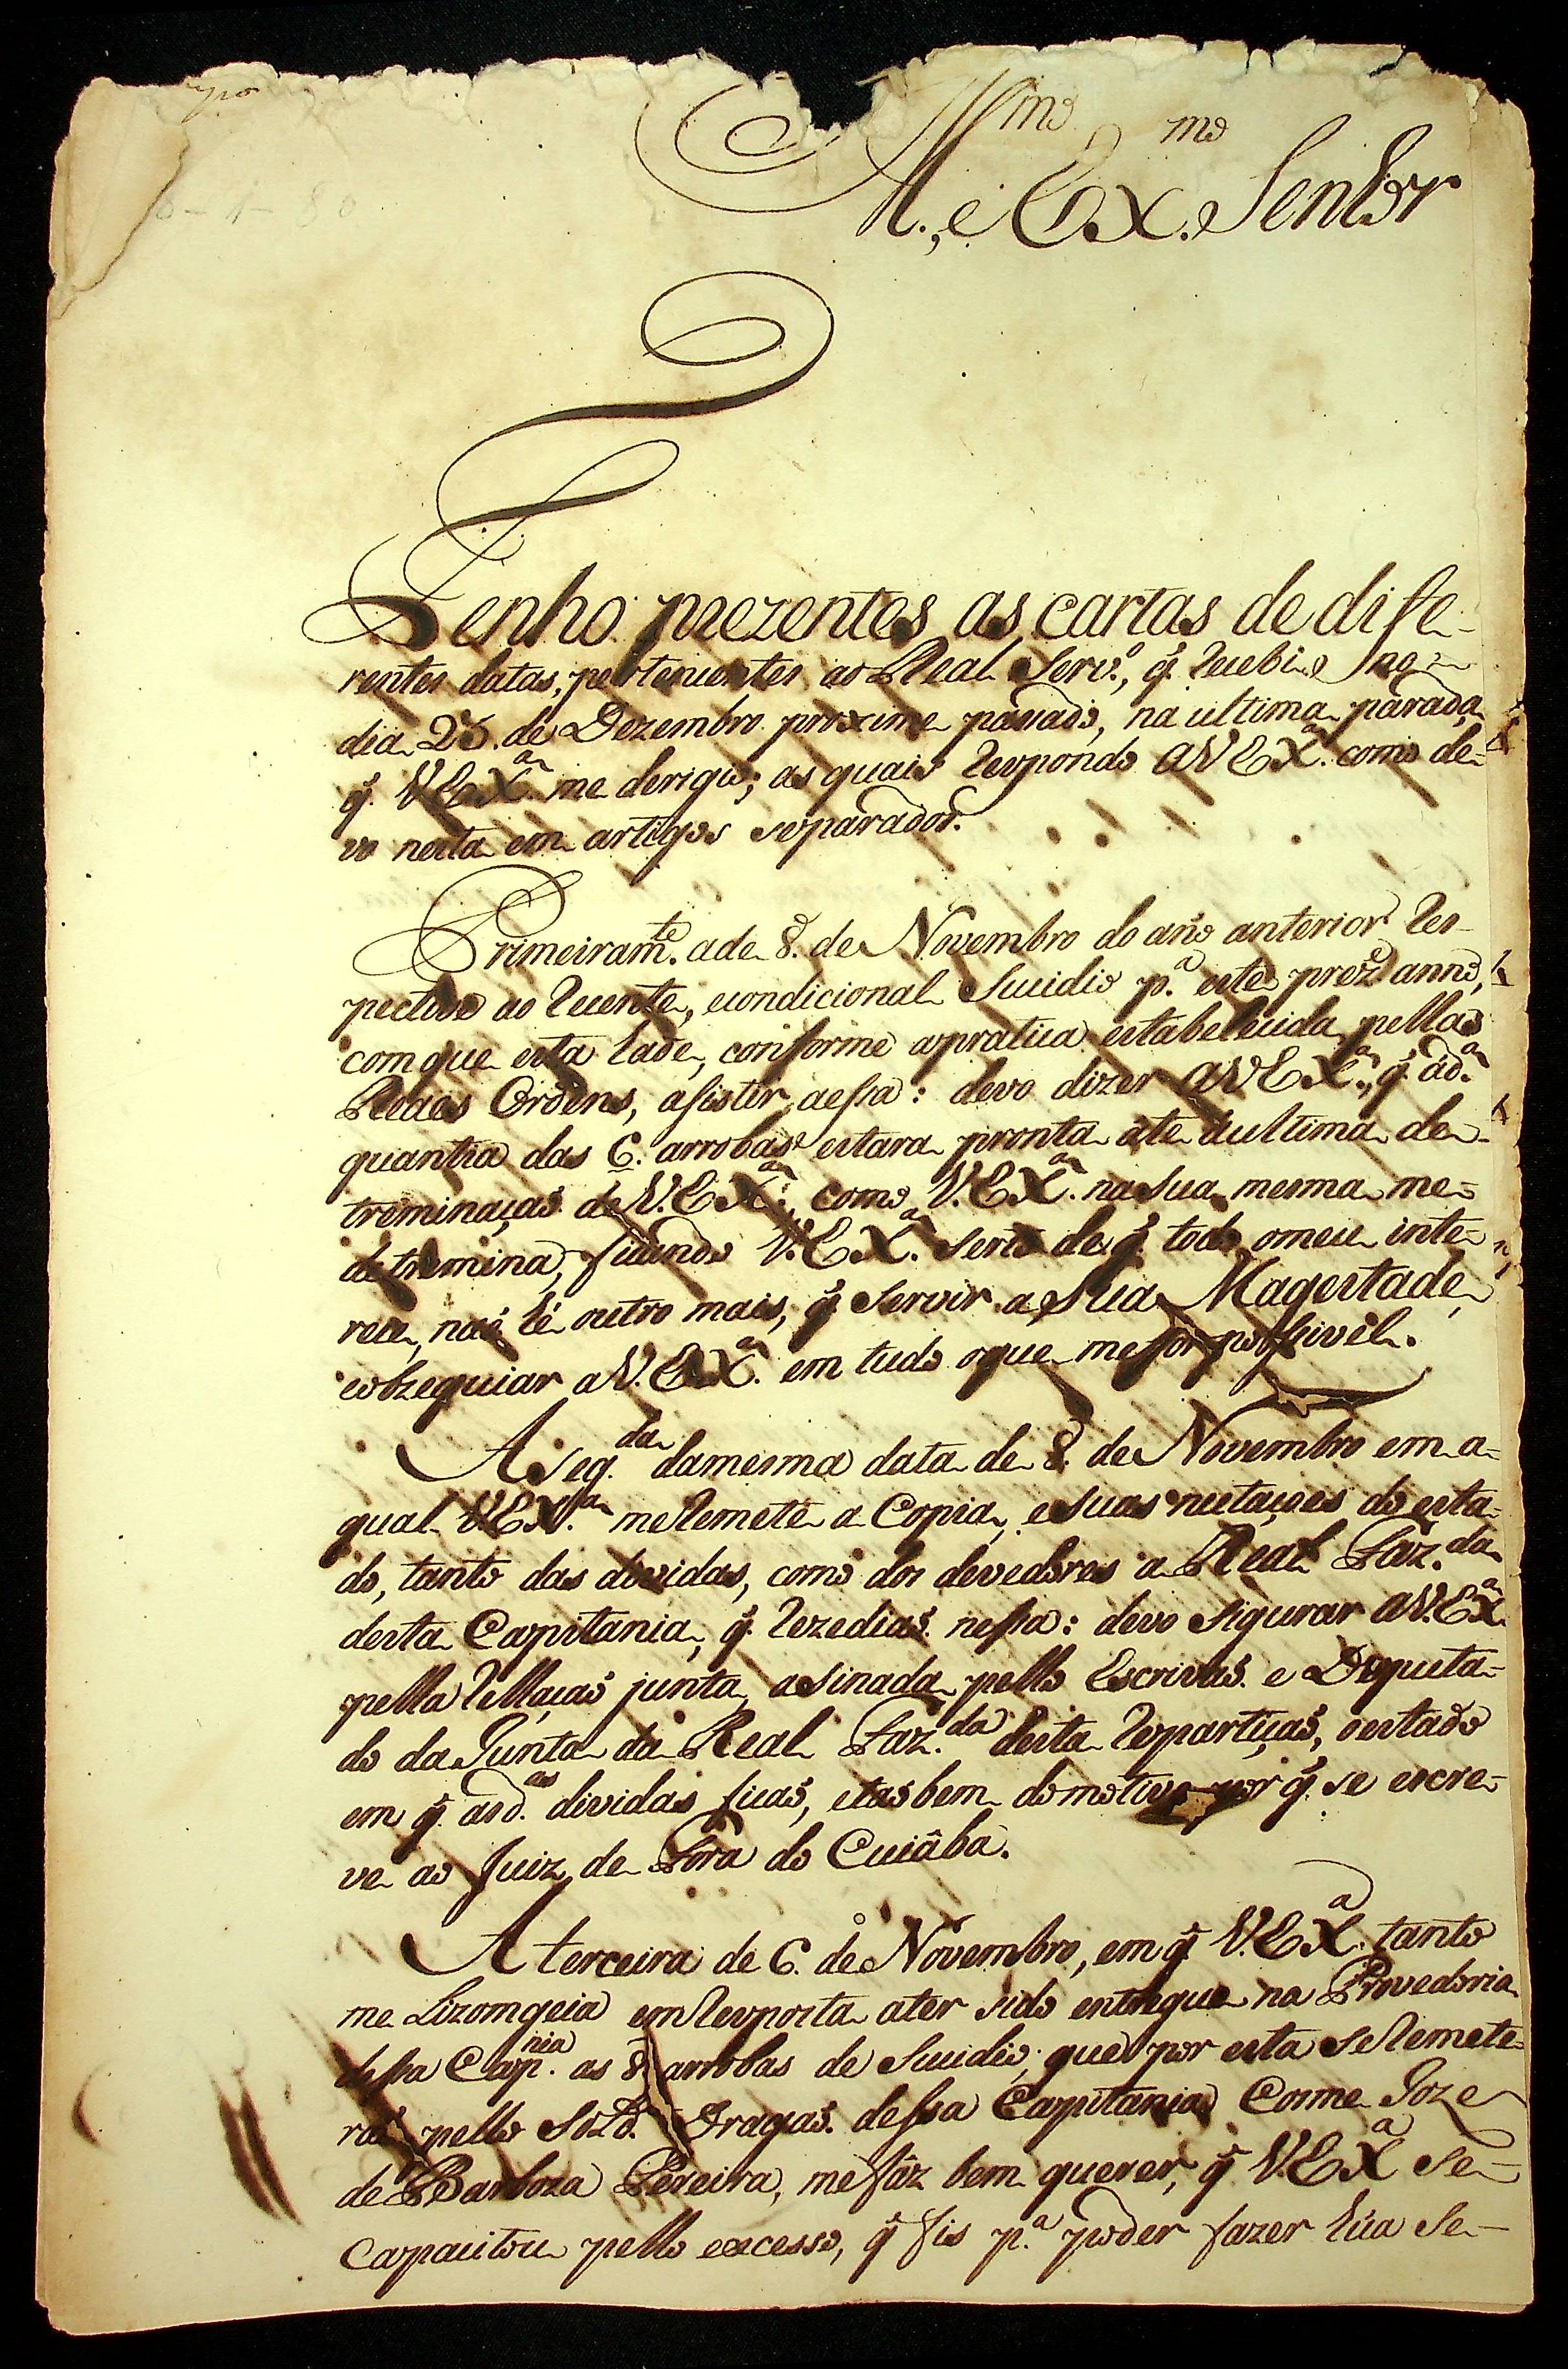 Ill.mo e Ex.mo Senhor
Tenho prezentes as cartas de dife-
rentes datas, pertencentes ao Real Serv.º, q̃ recebi no
dia 23. de Dezembro proximo pasado, na ultima parada
q̃. V.EX.ª me derigio; as quais respondo a V EX.ª como de-
vo nesta em artigos separados.
Primeiram.te a de 8. de Novembro do año anterior res-
pectivo ao recente, e condicional Sucidio p.ª este prez.e anno,
com que esta hade, conforme a pratica estabelecida pellas
Reaes Ordens, asistir a essa: devo dizer a V EX.ª, q̃ a d.ª
quantia das 6. arrobas estara pronta ate a ultima de-
treminação de V.EX.ª, como V.EX.ª na sua mesma me
detremina, ficando V.EX.ª serto de q̃ todo o meu inte-
rece, não hé outro mais, q̃ Servir a Sua Magestade,
e obzequiar a V.EX.ª em tudo o que me for posivel.
A seg.da da mesma data de 8. de Novembro em a-
qual V.EX.ª me remete a Copia, e suas rectações do esta-
do, tanto das dividas, como dos devedores a Real Faz.da
desta Capitania, q̃ rezedião nessa: devo sigurar a V.EX.ª
pella rellação junta, asinada pello Escrivão e Deputa-
do da Junta da Real Faz.da desta repartição, o estado
em q̃ as d.as dividas ficão, e tãobem do motivo por q̃ se escre-
ve ao Juiz de Fora do Cuiâba.
A terceira de 6. de Novembro, em q̃ V.EX.ª tanto
me Lizomgeia em resposta a ter sido entregue na Provedoria
dessa Cap.nia as 8 arrobas de Sucidio, que por esta se remete-
rão pello Sold. Dragão dessa Capitania Cosme Joze
de Barboza Pereira, me fâz bem querer, q̃ V.EX.ª se
capacitou pello excesso, q̃ fis p.ª poder fazer hûa se-